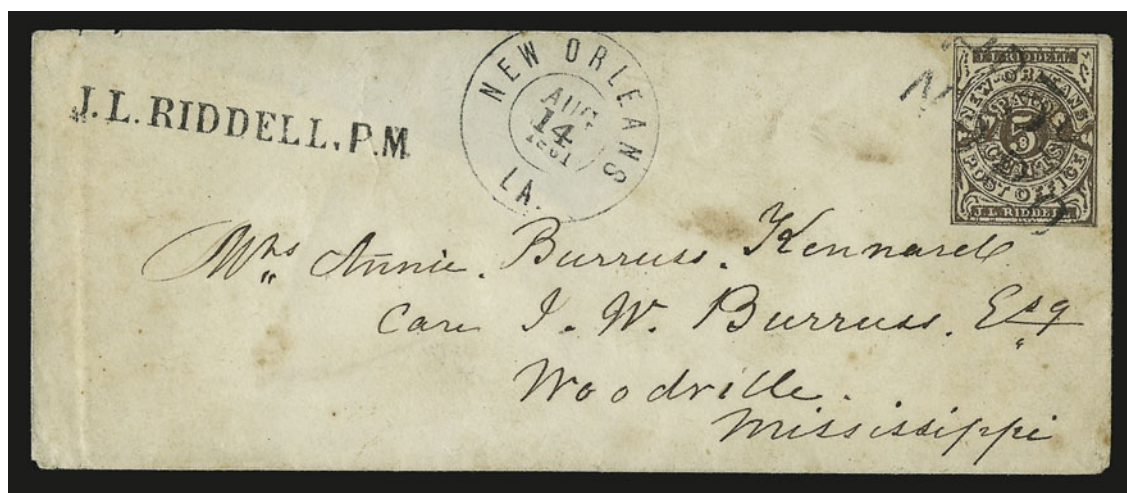 J. L. RIDDELL, P.M
NEW ORLEANS
AUG
14
1861
LA.
J. L. RIDDELL
NEW-ORLEANS
5
CENTS
POST OFFICE
J. L. RIDDELL
Mrs Annie. Burruss. Kennard
Care I. W. Burruss. Esq
Woodville.
Mississippi